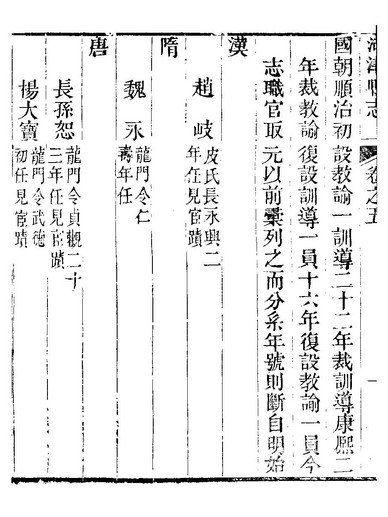 河津縣志 卷之五
國朝順治初設教諭一訓導二十二年裁訓導康熙二
年裁教諭復設訓導一員十六年復設教諭一員今
志職官取元以前彙列之而分系年號則斷自明始
漢
趙岐 皮氏長永興二
年任見宦蹟
隋
魏永 龍門令仁
壽年任
唐
長孫恕 龍門令貞觀二十
三年任見宦蹟
楊大寶 龍門令武德
初任見宦蹟